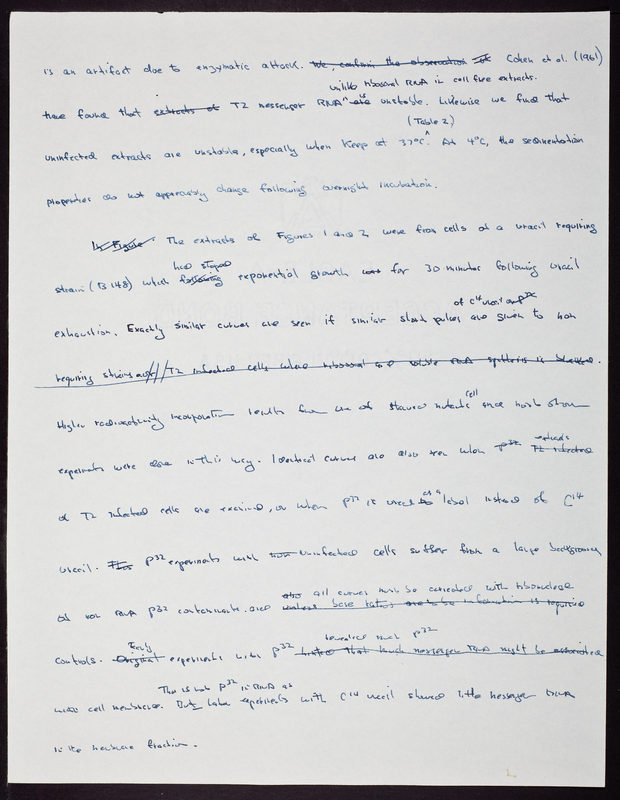 is an artifact due to enzymatic attack. We, confirm the observation of Cohen et al. (1961)
unlike ribosomal RNA in cell free extracts.
have found that extracts of T2 messenger RNA is are unstable. Likewise we find that
(Table 2)
uninfected extracts are unstable, especially when keep at 37°C. At 4°C, the sedimentation
properties do not appreciably change following overnight incubation.
In Figure The extracts of Figures 1 and 2 were from cells of a uracil requiring
had stopped
strain (B148) which following exponential growth was for 30 minutes following uracil
of C14 uracil or P32
exhaustion. Exactly similar curves are seen if similar short pulses are given to non
requiring strains and///T2 infected cells where ribosomal and soluble RNA synthesis is blocked.
cell
Higher radioactivity incorporation results from use of starved mutants since most
experiments were done in this way. Identical curves are also seen when P32 extracts T2 infected
of T2 infected cells are examined, or when P32 is used as a label instead of C14
uracil. This P32 experiments with non uninfected cells suffer from a large background
also all curves must be corrected with ribonuclease
of non RNA P32 contaminants and unless base ratios are to be information is required
Early revealed much P32
controls. Original experiments with P32 hinted that much messenger RNA might be associated
This is not P32 in RNA as
with cell membrane. But later experiments with C14 uracil showed little messenger RNA
in the membrane fraction.